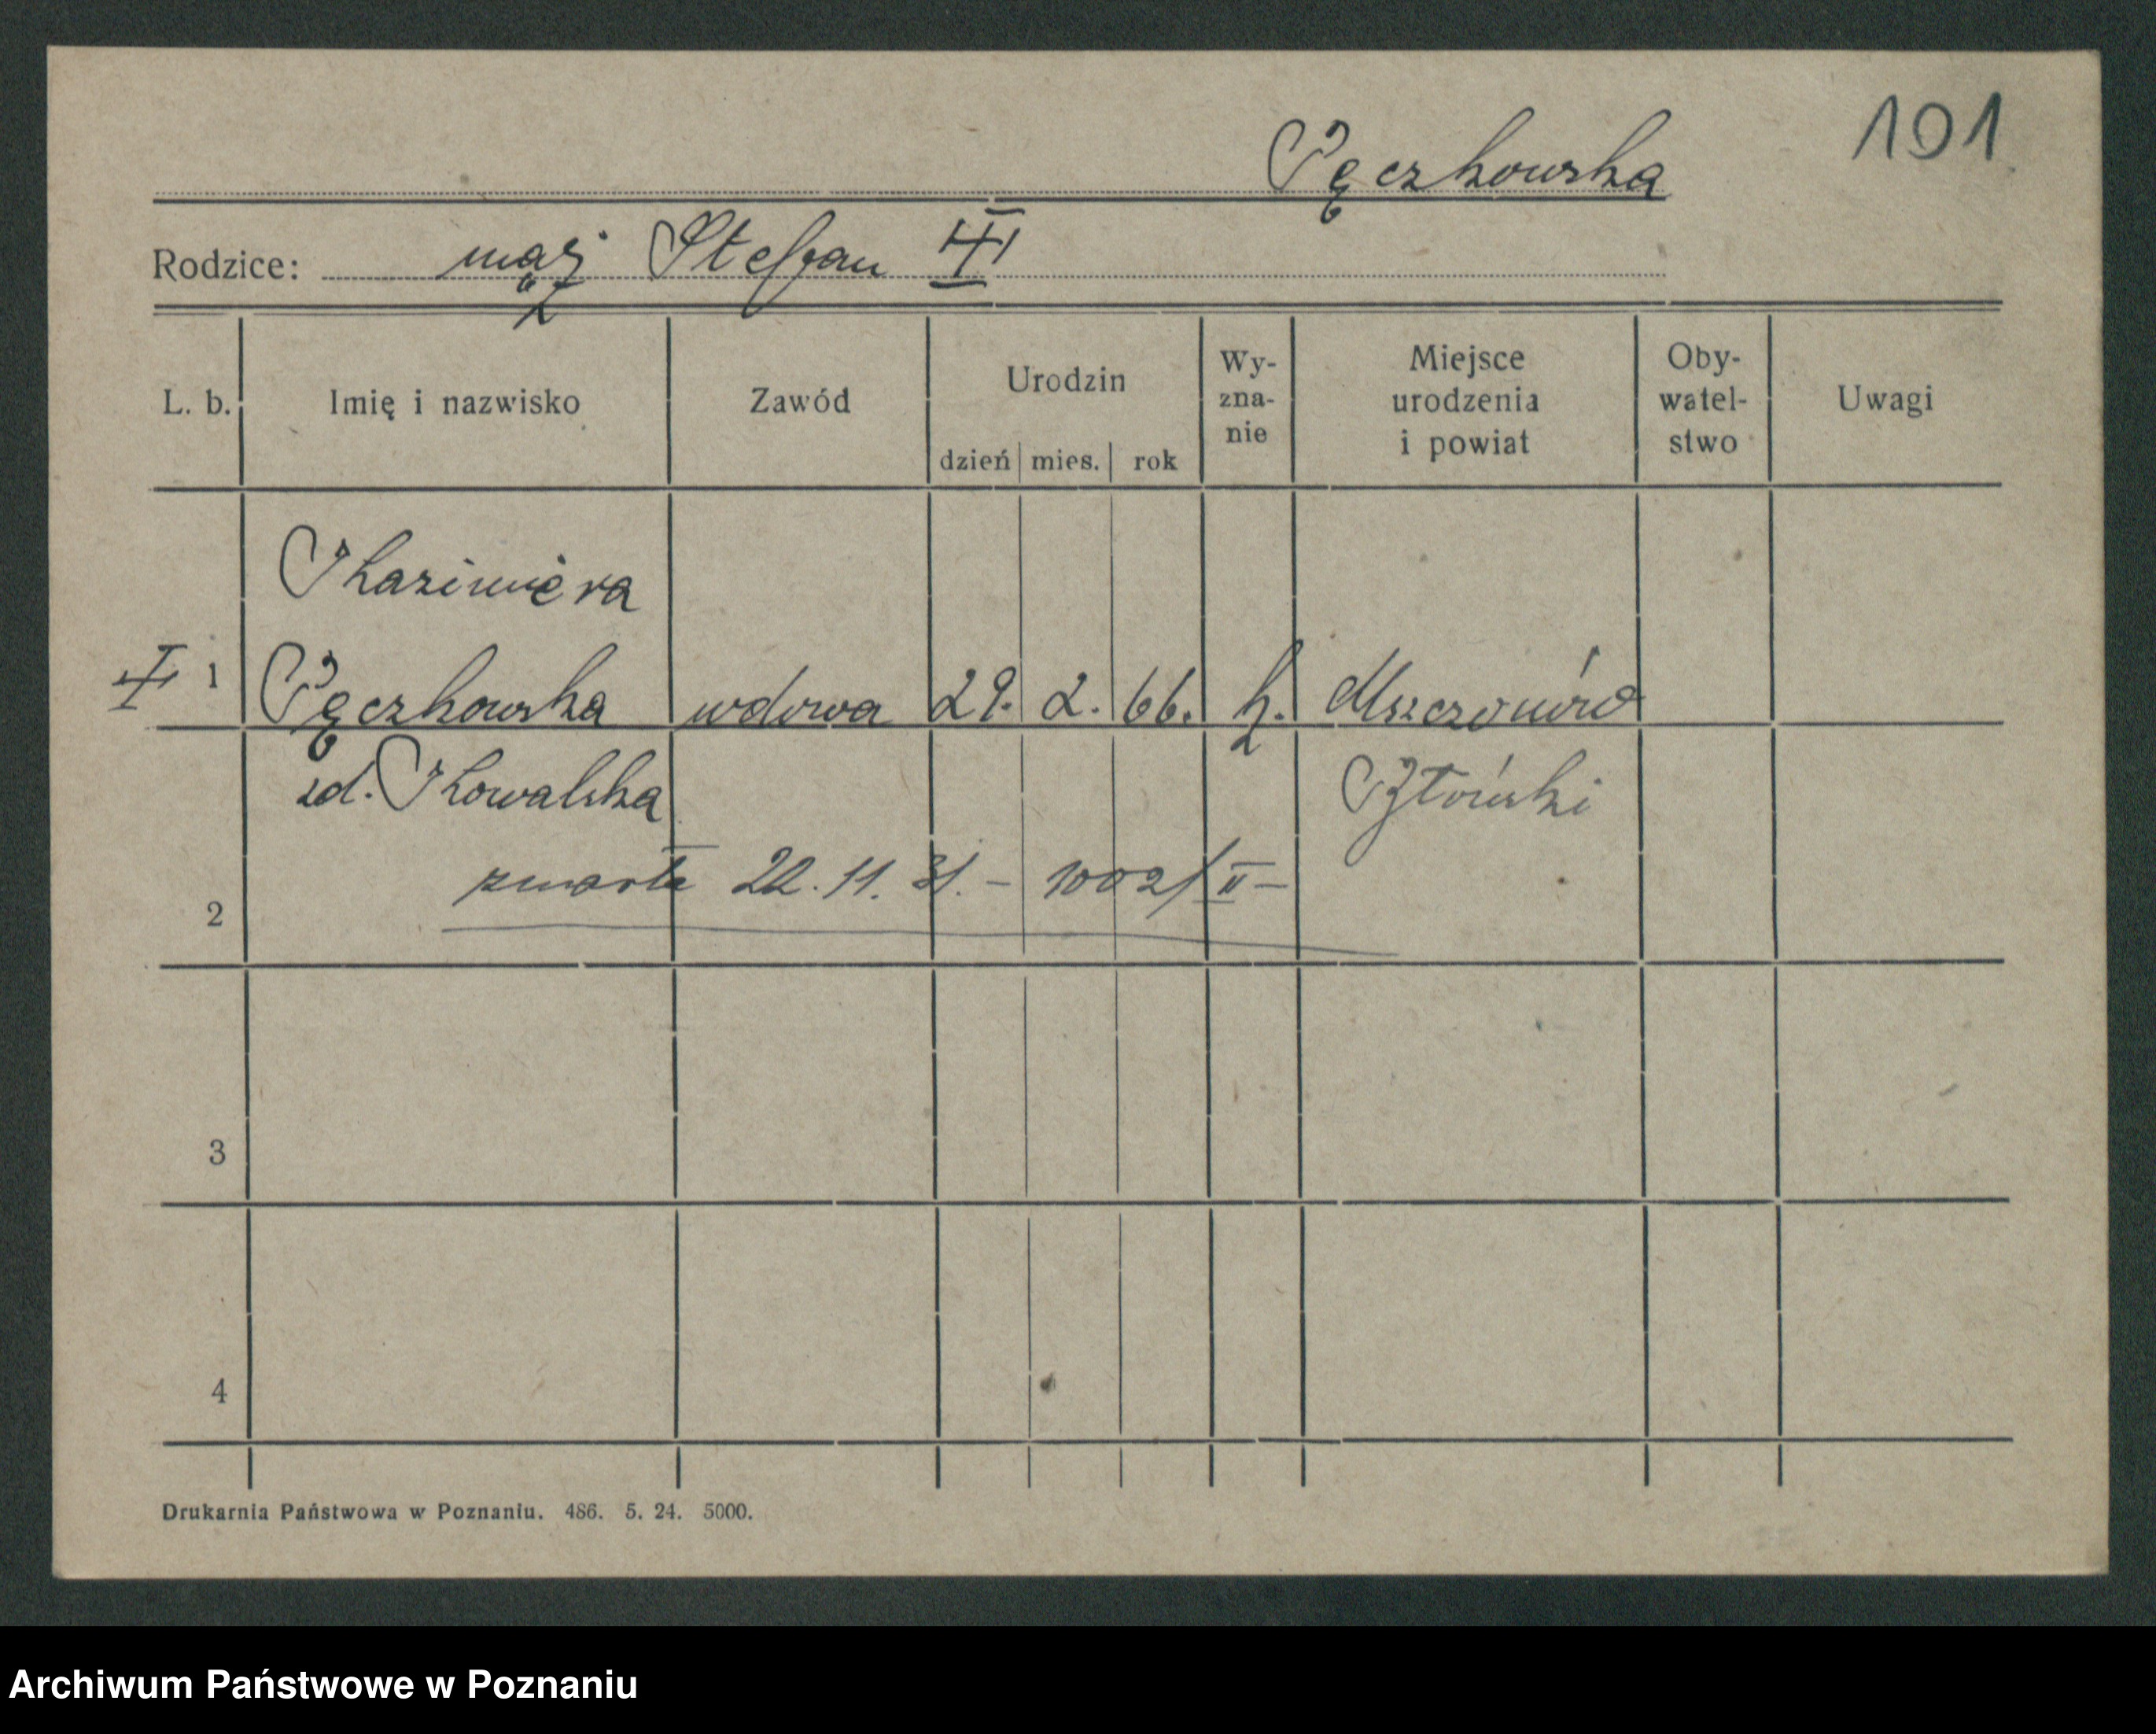 101
Pęczkowska
Rodzice: mąż Stefan
L. b. Imię i nazwisko Zawód Urodzin dzień mies. rok Wy-zna-nie Miejsce urodzenia i powiat Oby-watel-stwo Uwagi
Kazimiera
1 Pęczkowska wdowa 29. 2. 66. k. Mszczonów
zd. Kowalska
zmarła 22. 11. 31. – 1002/II –
2
3
4
Drukarnia Państwowa w Poznaniu. 486. 5. 24. 5000.
Archiwum Państwowe w Poznaniu